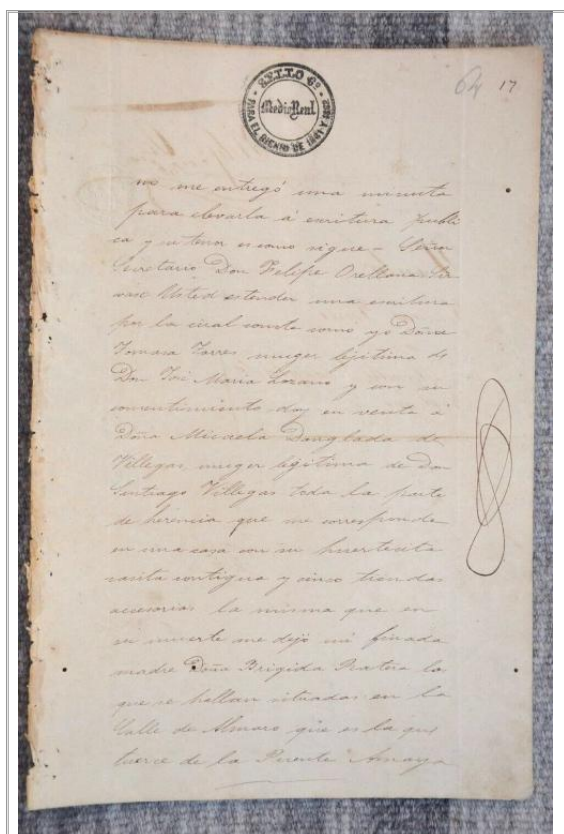 SELLO 6º
Medio Real
PARA EL BIENIO DE 1881 Y 1882
64 17
me entregó una minuta
para elevarla á escritura publi
ca y su tenor es como sigue = Señor
Secretario Don Felipe Orellana Sir
vase Usted estender una escritura
por la cual conste como yo Doña
Tomasa Torres muger lejitima de
Don José Maria Lozano y con su
consentimiento doy en venta á
Doña Micaela Danglada de
Villegas, muger lejitima de Don
Santiago Villegas toda la parte
de herencia que me corresponde
en una casa con su huertecita
casita contigua y cinco tiendas
accesorias la misma que en
su muerte me dejó mi finada
madre Doña Brigida la
que se hallan situadas en la
Calle de que es la que
tuerce de la Puente Amaya